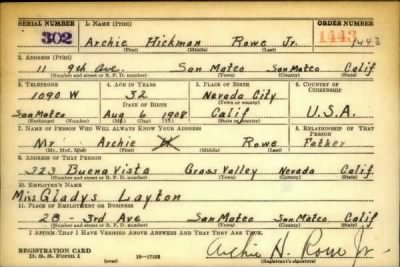 SERIAL NUMBER 1. NAME (Print) ORDER NUMBER
302 Archie Hickman Rowe Jr. 1443 1443
(First) (Middle) (Last)
2. ADDRESS (Print)
11 9th Ave. San Mateo San Mateo Calif
(Number and street or R. F. D. number) (Town) (County) (State)
3. TELEPHONE 4. AGE IN YEARS 5. PLACE OF BIRTH 6. COUNTRY OF CITIZENSHIP
1090 W 32 Nevada City
DATE OF BIRTH (Town or county)
San Mateo Aug 6 1908 Calif U.S.A.
(Exchange) (Number) (Mo.) (Day) (Yr.) (State or country)
7. NAME OF PERSON WHO WILL ALWAYS KNOW YOUR ADDRESS 8. RELATIONSHIP OF THAT PERSON
Mr. Archie H Rowe Father
(Mr., Mrs., Miss) (First) (Middle) (Last)
9. ADDRESS OF THAT PERSON
323 Buena Vista Grass Valley Nevada Calif
(Number and street or R. F. D. number) (Town) (County) (State)
10. EMPLOYER'S NAME
Miss Gladys Layton
11. PLACE OF EMPLOYMENT OR BUSINESS
28 - 3rd Ave San Mateo San Mateo Calif
(Number and street or R. F. D. number) (Town) (County) (State)
I AFFIRM THAT I HAVE VERIFIED ABOVE ANSWERS AND THAT THEY ARE TRUE.
REGISTRATION CARD Archie H. Rowe Jr
D. S. S. FORM 1 (over) 16-17105 (Registrant's signature)